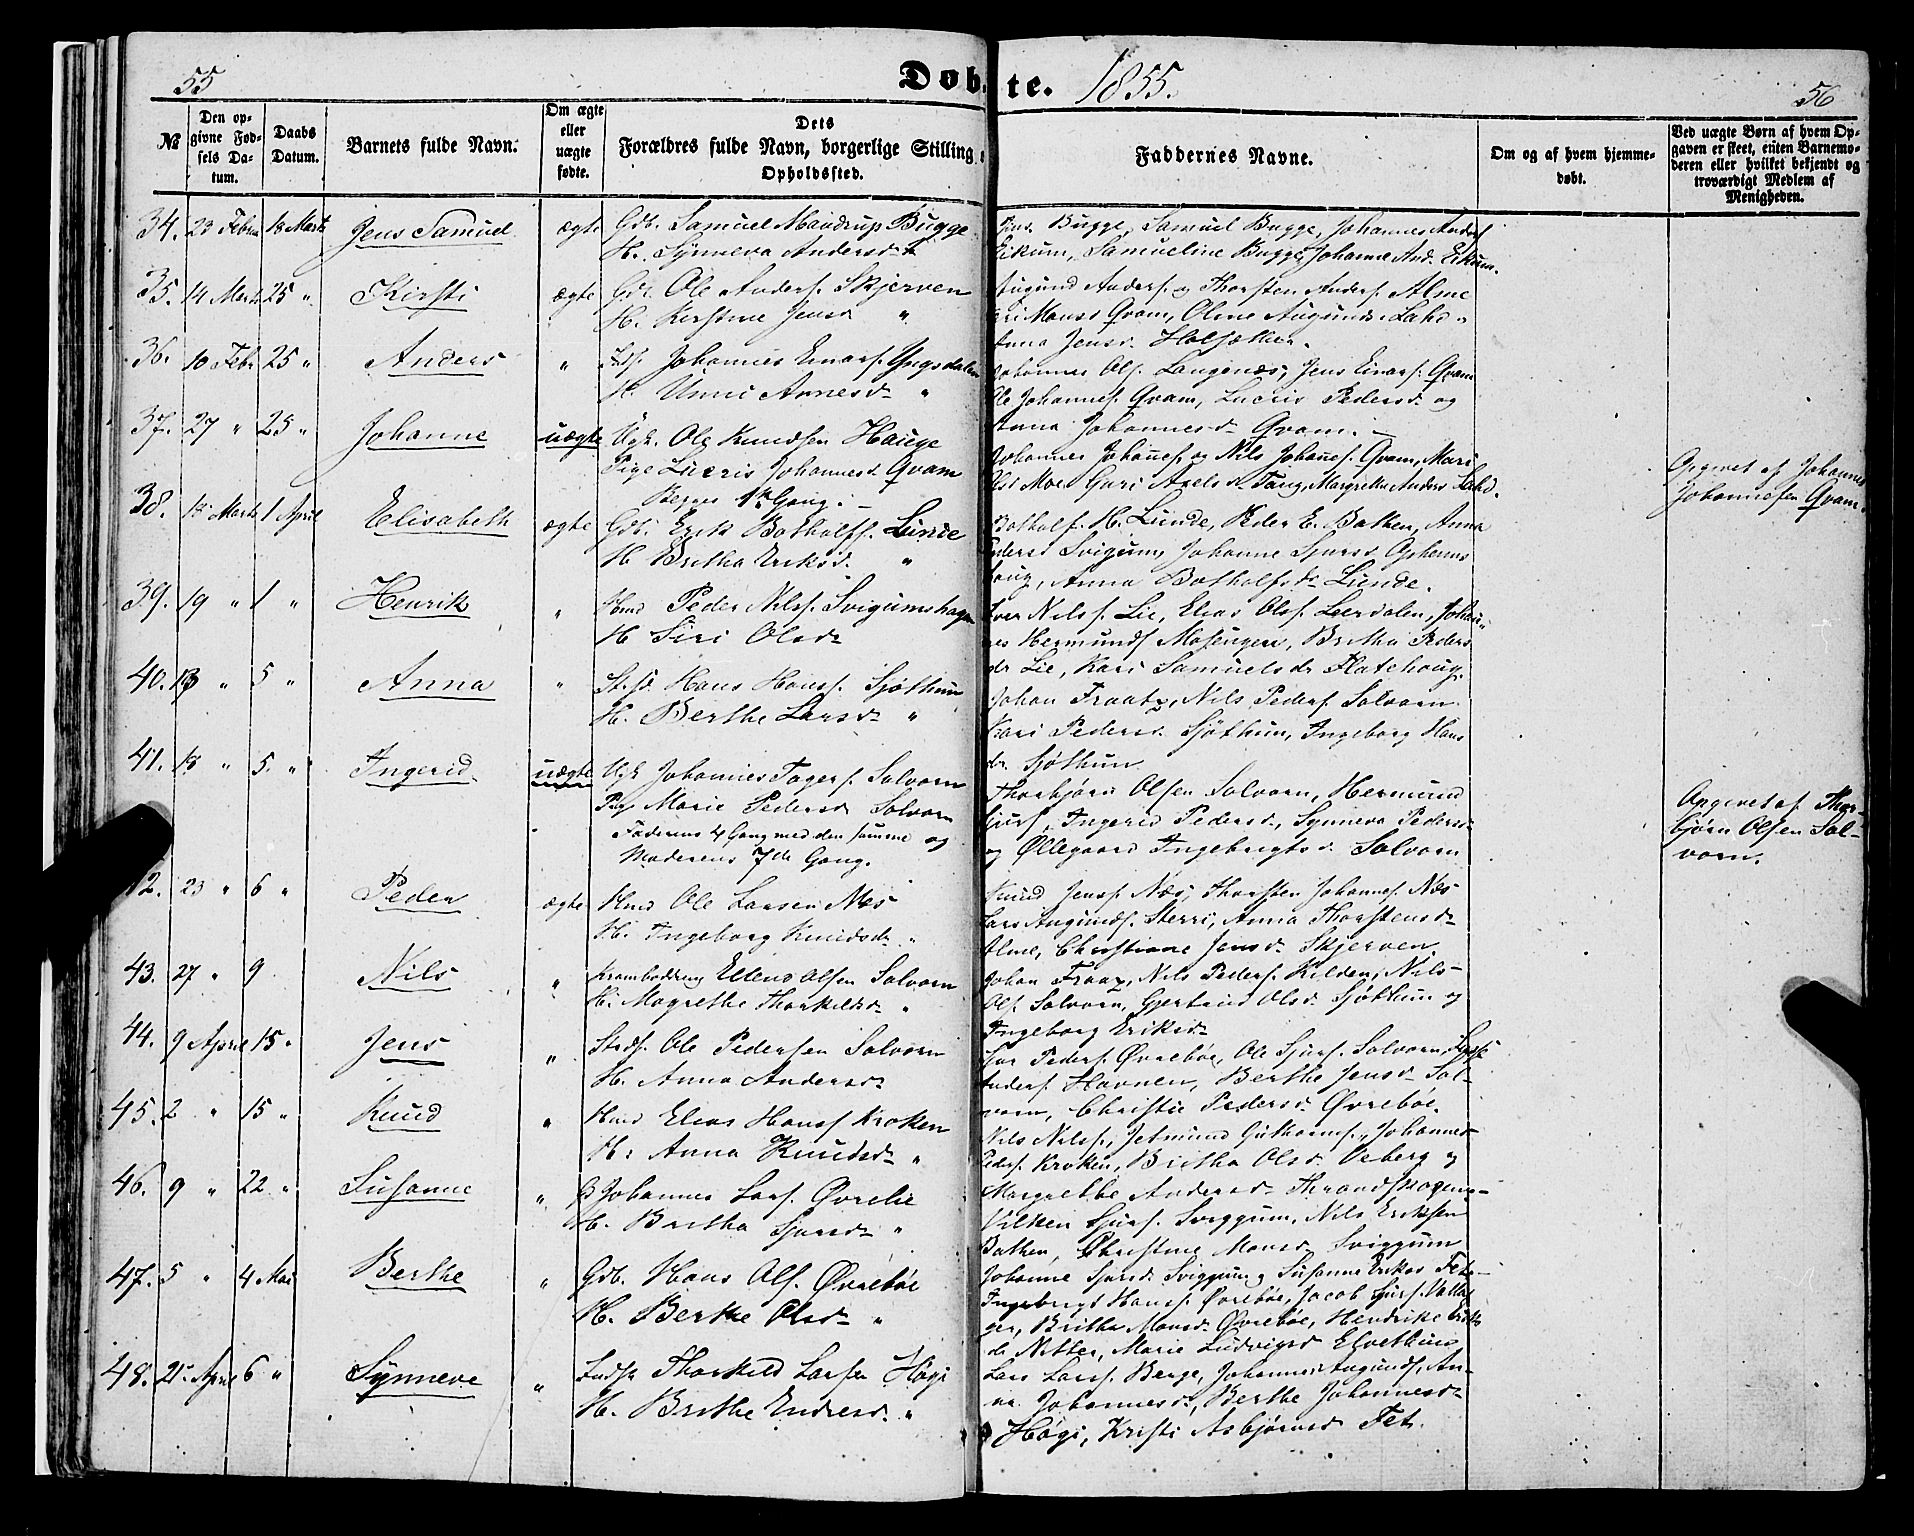 55
Døbte. 1855.
56
№
Den opgivne Fødsels Datum.
Daabs Datum.
Barnets fulde Navn.
Om ægte eller uægte fødte.
Dets Forældres fulde Navn, borgerlige Stilling, Opholdssted.
Faddernes Navne.
Om og af hvem hjemmedøbt.
Ved uægte Børn af hvem Opgaven er skeet, enten Barnemoderen eller hvilket bekjendt og troværdigt Medlem af Menigheden.
34. 23 Febru 18 Marts Jens Samuel ægte Gdb. Samuel Mandrup Bugge
H. Synneva Andersdr
Bugge, Samuel Bugge, Johannes Anders
Eikum, Samueline Bugge, Johanne And. Eikum
35. 14 Marts 25 " Kirsti ægte Gdb. Ole Anders. Skjerven
H. Kirstine Jensd "
Augund Anders. og Thorsten Anders. Alme
Mons Qvam, Oline Augunds. Lahd.
Anna Jensd.
36. 10 Febr 25 " Anders " Johannes Einars. Yngsdalen
H. Unni Arnesd. "
Johannes Ols. Langenæs, Jens Einars. Qvam
Ole Johannes. Qvam, Lucris Pedersd. og
Anna Johannesd. Qvam.
37. 27 " 25 " Johanne uægte Ugk. Ole Knudsen Hauge
Pige Lucris Johannesd. Qvam
Begges 1ste Gang.
Johannes Johannes. og Nils Johannes. Qvam, Mari
Olsd Moe Guri Axelsd. Fang, Margrethe Anders Lahd.
Opgivet af Johannes
Johannesen Qvam.
38. 18 Marts 1 April Elisabeth ægte Gdb. Erik Botholfs. Lunde
H. Britha Eriksd. "
Botholf H. Lunde, Peder E. Bathen, Anna
Pedersd Svigum, Johanne Sjursd.
Anna Botholfsdr Lunde.
39. 19 " 1 " Henrik " Hmd Peder Nils. Svigumshagen
H. Siri Olsdr
Iver Nils. Lie, Elias Ols. Leerdalen, Johan-
nes Hermunds. Britha Peders
dr Lie, Kari Samuelsdr Flatehoug.
40. " 5 " Anna " Hans Hans. Sjøthun
H. Berthe Larsdr "
Johan Fraas, Nils Peders. Solvorn
Kari Pedersd. Sjøthun, Ingeborg Hans
dr. Sjøthun
41. 18 " 5. " Ingerid uægte Ugk Johannes Tagers. Solvorn
Marie Pedersd. Solvorn
Faderens 4 Gang med den samme og
Moderens 7de Gang.
Thorbjørn Olsen Solvorn, Hermund
Sjurs., Ingerid Pedersd., Synneva Pedersd
og Øllegaard Ingebrigtsd. Solvorn
Opgivet af Thor-
bjørn Olsen Sol-
vorn.
42. 23 " 6 " Peder ægte Hmd Ole Larsen Næs
H. Ingeborg Knudsdr. "
Knud Jens. Næs, Thorsten Johannes. Næs
Lars Augunds. Sterri, Anna Thorstensd
Alme, Christiane Jensd. Skjerven
43. 27 " 9 Nils " Ellend Olsen Solvorn
H. Magrethe Thorkildsd. "
Johan Fraas, Nils Peders. Kilden, Nils
Ols. Solvorn, Gjertrud Olsd. Sjøthun og
Ingeborg Eriksdr
44. 9 April 15 " Jens " Ole Pedersen Solvorn
H. Anna Andersdr
Peders. Øvrebøe, Ole Sjurs. Solvorn,
Anders. Havnen, Berthe Jensdr Sol-
vorn, Christie Pedersd. Øvrebøe.
45. 2 " 15 " Knud " Hmd Elias Hans. Kroken
H. Anna Knudsdr "
Nils Nils., Jetmund Guthorms., Johannes
Peders. Kroken, Britha Olsd. Veberg og
Margrethe Andersdr
46. 9 " 22 " Susanne " Johannes Lars. Øvrelie
H. Britha Sjursdr "
Vilken Sjurs. Sviggum, Nils Eriksen
Bathen, Christine Monsd. Sviggum
Johanne Sjursd. Sviggum, Susanne Eriksd Fet
47. 5 " 4 Mai Berthe " Gdb. Hans Ols. Øvrebøe
H. Berthe Olsdr "
Ingebrigt Hans. Øvrebøe, Jacob Sjurs.
Britha Monsd. Øvrebøe, Hendrike Eriks
dr Nitter, Marie Ludvigsd Elvethun
48. 21 April 6 " Synneve " Inds. Thorkild Larsen Høgi
H. Brithe Endresd. "
Lars Lars. Berge, Johannes Augunds. An-
na Johannesd., Berthe Johannesdr
Høgi, Kristi Asbjørnsd Fet.